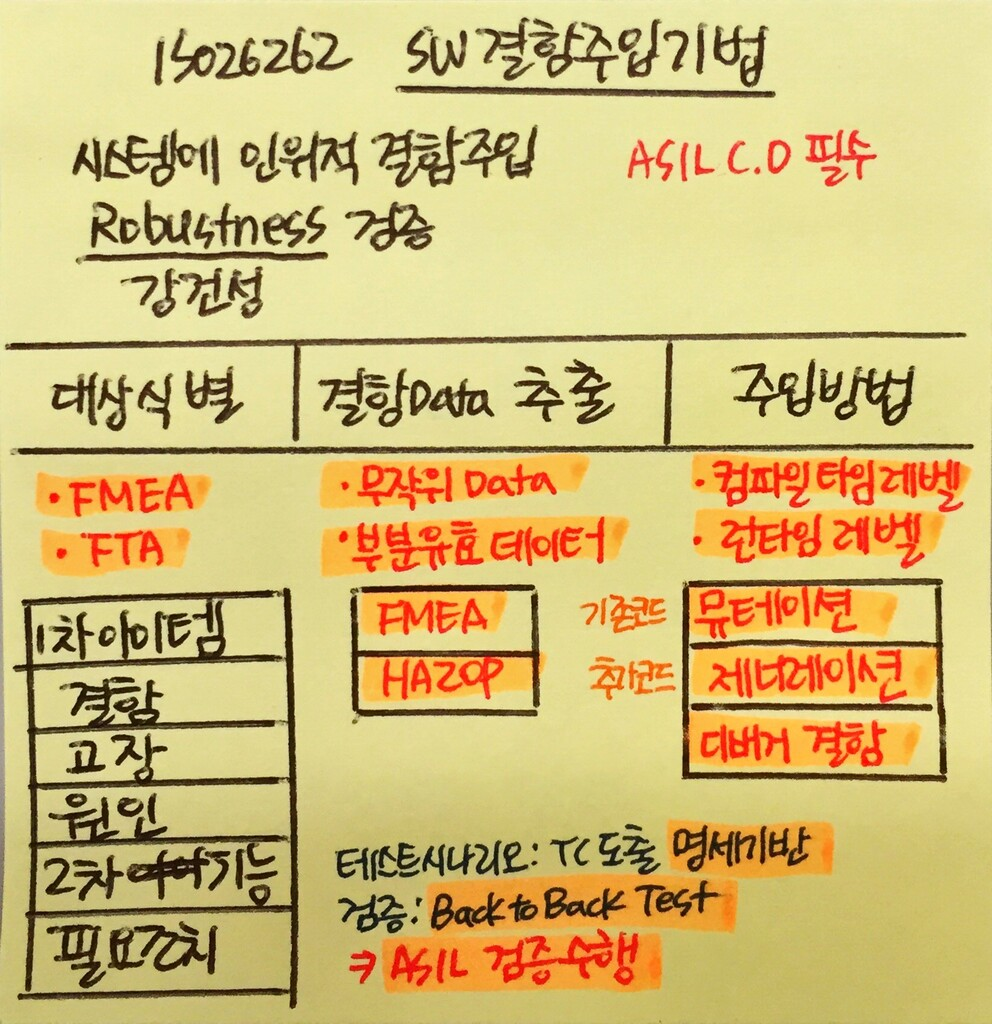 ISO26262 SW결함주입기법
시스템에 인위적 결함주입 ASIL C.D 필수
Robustness 검증
강건성
대상식별 결함Data 추출 주입방법
· FMEA · 무작위 Data · 컴파일타임레벨
· FTA · 부분유효데이터 · 런타임 레벨
1차아이템 FMEA 기존코드 뮤테이션
결함 HAZOP 추가코드 제너레이션
고장 디버거 결함
원인
2차 기능
필요조치
테스트시나리오: TC도출 명세기반
검증: Back to Back Test
⇒ ASIL 검증수행